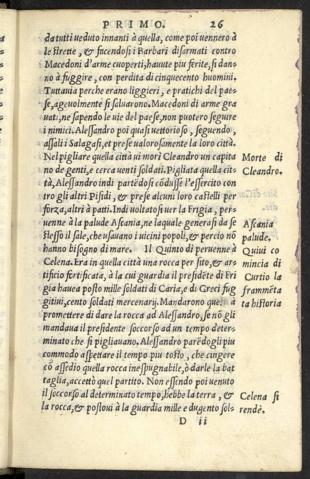 PRIMO. 26
da tutti ueduto innanti à quella, come poi uennero à
le strette, & facendosi i Barbari disarmati contro
Macedoni d'arme cuoperti, hauute piu ferite, si dan-
no à fuggire, con perdita di cinquecento huomini.
Tuttauia perche erano liggieri, e pratichi del pae-
se, ageuolmente si saluarono. Macedoni di arme gra
uati, ne sapendo le uie del paese, non puotero segure
i nimici. Alessandro poi quasi uettorioso, seguendo,
assalì i Salagasi, et prese ualorosamente la loro città.
Nel pigliare quella città ui morì Cleandro un capita
no de genti, e cerca uenti soldati. Pigliata quella cit-
tà, Alessandro indi partēdosi cōdusse l'essercito con
tro gli altri Pisidi, & prese alcuni loro castelli per
forza, altri à patti. Indi uoltatosi uer la Frigia, per-
uenne à la palude Ascania, ne laquale generasi da se
stesso il sale, che usauano i uicini popoli, & perciò nō
hanno bisogno di mare. Il Quinto dì peruenne à
Celena. Era in quella città una rocca per sito, & ar-
tificio fortificata, à la cui guardia il presidēte di Fri
gia hauea posto mille soldati di Caria, e di Greci fug
gitiui, cento soldati mercenarij. Mandarono que. à
promettere di dare la rocca ad Alessandro, se nō gli
mandaua il presidente soccorso ad un tempo deter-
minato che si pigliauano. Alessandro parēdogli piu
commodo aspettare il tempo piu tosto, che cingere
cō assedio quella rocca inespugnabile, ò darle la bat
taglia, accettò quel partito. Non essendo poi uenuto
il soccorso al determinato tempo, hebbe la terra, &
la rocca, & postoui à la guardia mille e dugento sol-
D ii
Morte di
Cleandro.
Ascania
palude.
Quiui co
mincia di
Curtio la
frammēta
ta historia
Celena si
rende.